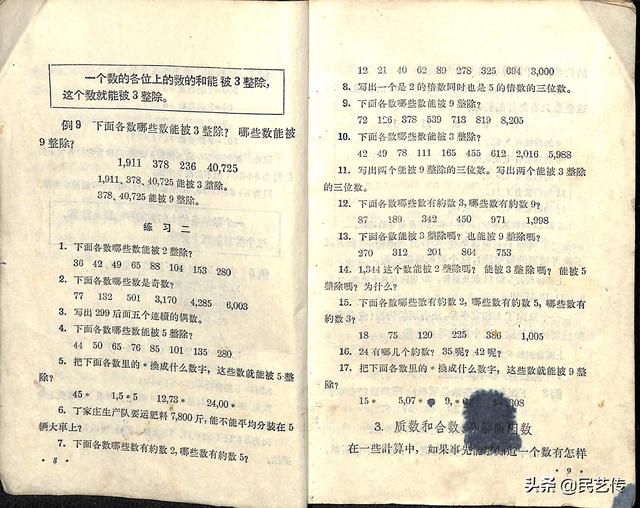 一个数的各位上的数的和能被3整除，
这个数就能被3整除。
例9 下面各数哪些数能被3整除？哪些数能被
9整除？
1,911 378 236 40,725
1,911、378、40,725能被3整除。
378、40,725能被9整除。
练习二
1. 下面各数哪些数能被2整除？
36 42 49 65 88 104 153 280
2. 下面各数哪些数是奇数？
77 132 501 3,170 4,285 6,003
3. 写出299后面五个連續的偶数。
4. 下面各数哪些数能被5整除？
44 50 65 76 85 101 135 280
5. 把下面各数里的*換成什么数字，这些数就能被5整
除？
45* 1,5*5 12,73* 24,00*
6. 丁家庄生产队要运肥料7,800斤，能不能平均分装在5
辆大車上？
7. 下面各数哪些数有約数2，哪些数有約数5？
·8·
12 21 40 62 89 278 325 694 3,000
8. 写出一个是2的倍数同时也是5的倍数的三位数。
9. 下面各数哪些数能被9整除？
72 126 378 539 713 819 8,205
10. 下面各数哪些数能被3整除？
42 49 78 111 165 455 612 2,016 5,988
11. 写出两个能被9整除的三位数。写出两个能被3整除
的三位数。
12. 下面各数哪些数有約数3，哪些数有約数9？
87 189 342 450 971 1,998
13. 下面各数能被3整除嗎？也能被9整除嗎？
270 312 201 864 753
14. 1,344这个数能被2整除嗎？能被3整除嗎？能被5
整除嗎？为什么？
15. 下面各数哪些数有約数2，哪些数有約数5，哪些数有
約数3？
18 75 120 225 386 1,005
16. 24有哪几个約数？35呢？42呢？
17. 把下面各数里的*換成什么数字，这些数就能被9整
除？
15* 5,07 9, 308
3. 质数和合数 因数
在一些計算中，如果事先 道一个数有怎样
·9·
头条 @民艺传